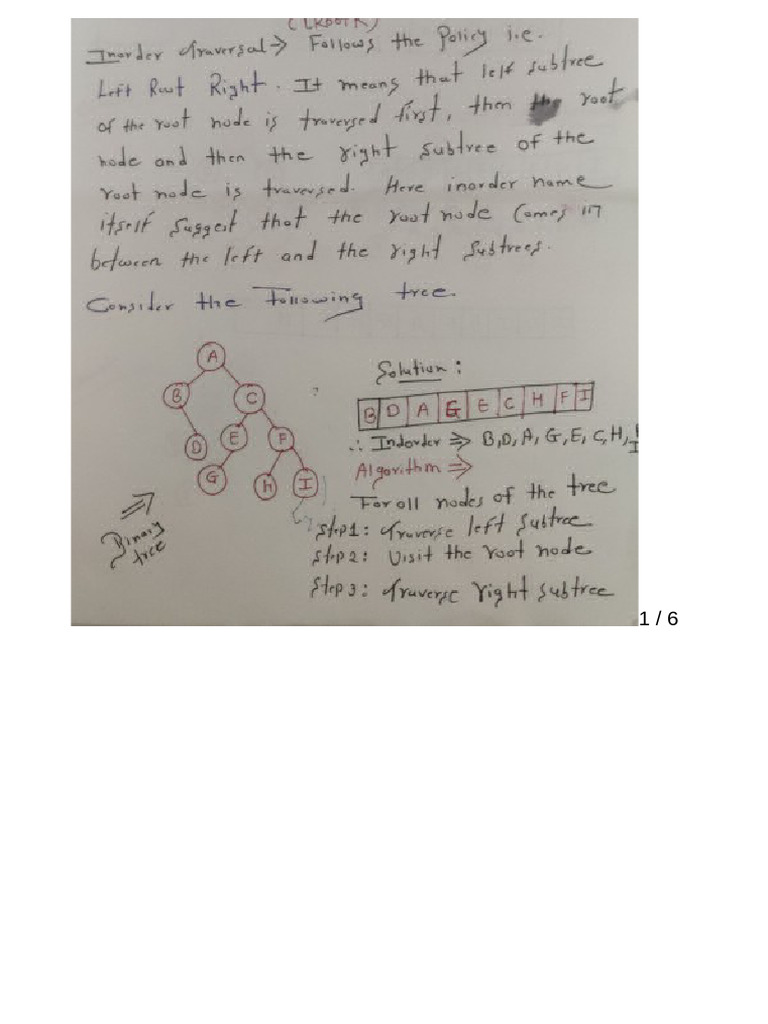 (LROOTR)
Inorder traversal → Follows the Policy i.e.
Left Root Right. It means that left subtree
of the root node is traversed first, then the root
node and then the right subtree of the
root node is traversed. Here inorder name
itself suggest that the root node comes in
between the left and the right subtrees.
Consider the Following tree.
A
B C
D E F
G h I
Binary
tree
Solution :
B D A G E C H F I
∴ Indorder ⇒ B,D,A,G,E,C,H,
I
Algorithm ⇒
For all nodes of the tree
Step1: traverse left subtree
Step2: Visit the root node
Step3: traverse right subtree
1 / 6